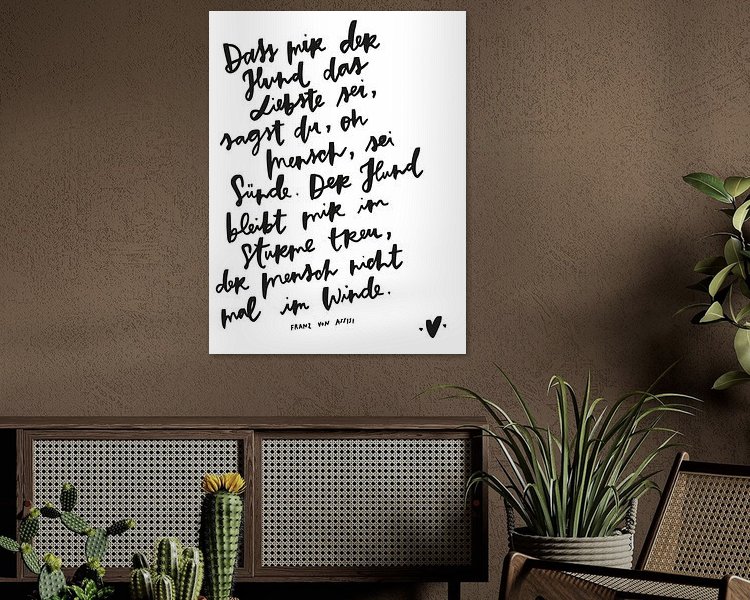 Dass mir der
Hund das
Liebste sei,
sagst du, oh
Mensch, sei
Sünde. Der Hund
bleibt mir im
Sturme treu,
der Mensch nicht
mal im Winde.
FRANZ VON ASSISI